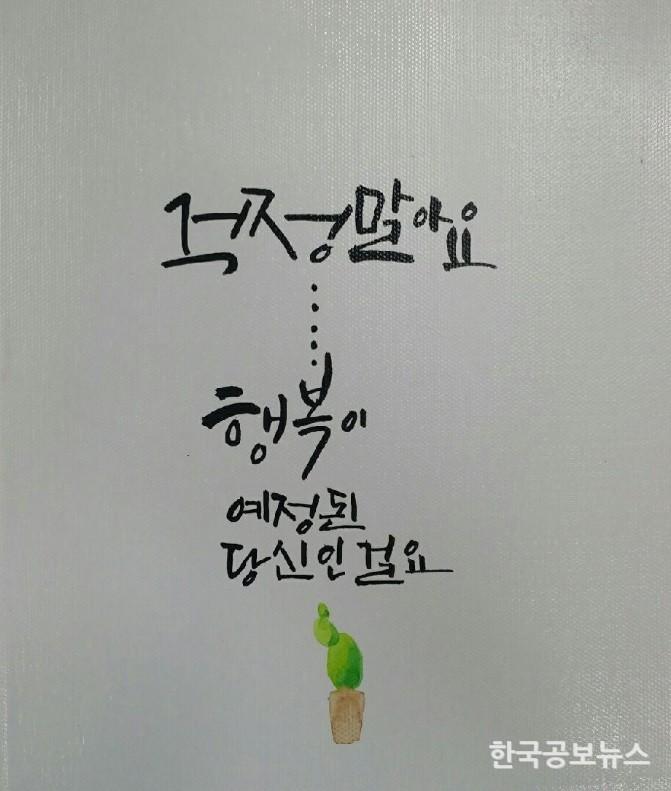 걱정말아요
행복이
예정된
당신인걸요
한국공보뉴스